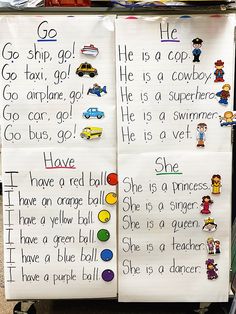 Go
Go ship, go!
Go taxi, go!
Go airplane, go!
Go car, go!
Go bus, go!
He
He is a cop.
He is a cowboy.
He is a superhero.
He is a swimmer.
He is a vet.
Have
I have a red ball.
I have an orange ball.
I have a yellow ball.
I have a green ball.
I have a blue ball.
I have a purple ball.
She
She is a princess.
She is a singer.
She is a queen.
She is a teacher.
She is a dancer.